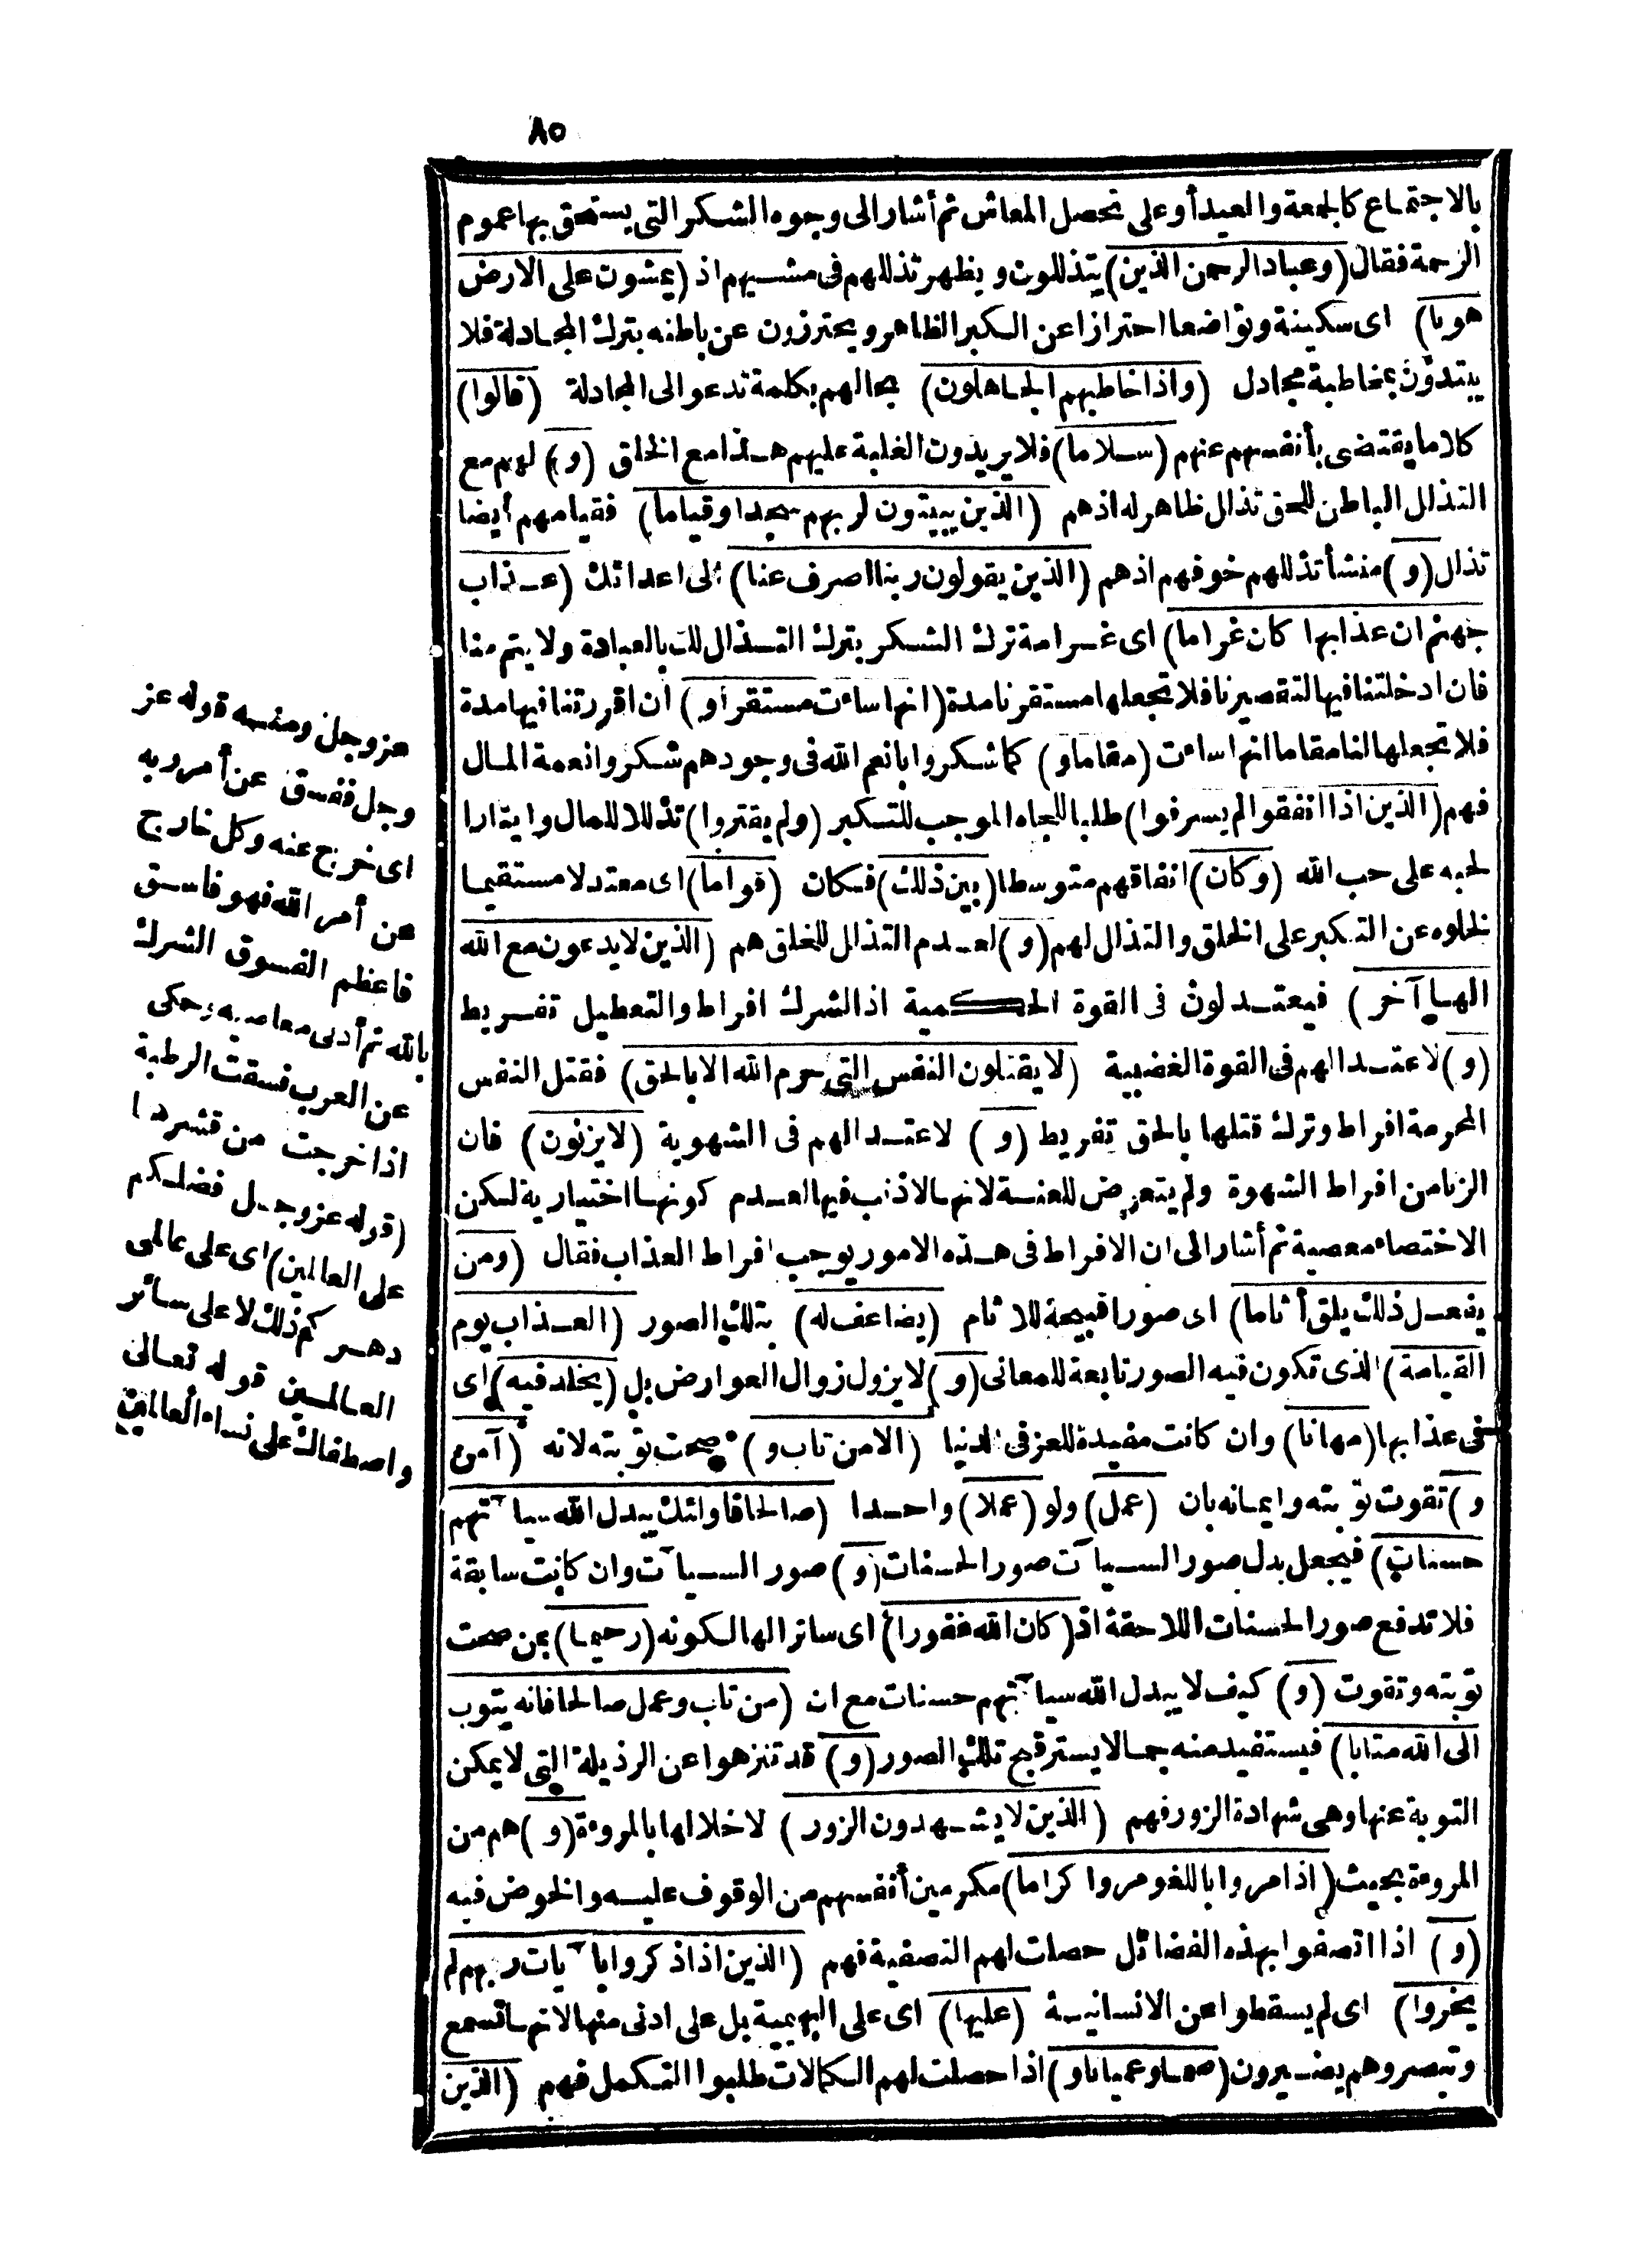 ٨٥
بالاجتماع كالجمعة والعيد أو على تحصل المعاش ثم أشار الى وجوه الشكر التى يستحق بها عموم
الرحمة فقال (وعباد الرحمن الذين) يتذللون ويظهر تذللهم فى مشيهم اذ (يمشون على الارض
هونا) اى سكينة وتواضعا احترازا عن الكبر الظاهر ويحترزون عن باطنه بترك المجادلة فلا
يبتدؤن بمخاطبة مجادل (واذا خاطبهم الجاهلون) بجالهم بكلمة تدعو الى المجادلة (قالوا)
كلاما يقتضى بأنفسهم عنهم (سلاما) فلا يريدون الغلبة عليهم هذا مع الخلق (و) لهم مع
التذلل الباطن للحق تذلل ظاهر له اذهم (الذين يبيتون لربهم سجدا وقياما) فقيامهم أيضا
تذلل (و) منشأ تذللهم خوفهم اذهم (الذين يقولون ربنا اصرف عنا) الى اعدائك (عذاب
جهنم ان عذابها كان غراما) اى غرامة ترك الشكر بترك التذلل لك بالعبادة ولا يتم منا
فان ادخلتنا فيها لتقصيرنا فلا تجعلها مستقرنا مدة (انها ساءت مستقرا و) ان اقررتنا فيها مدة
فلا تجعلها لنا مقاما انها ساءت (مقاما و) كما شكروا بانعم الله فى وجودهم شكروا نعمة المال
فهم (الذين اذا انفقوا لم يسرفوا) طلبا للجاه الموجب للتكبر (ولم يقتروا) تذللا للمال وايثارا
لحبه على حب الله (وكان) انفاقهم متوسطا (بين ذلك) فكان (قواما) اى معتدلا مستقيما
لخلوه عن التكبر على الخلق والتذلل لهم (و) لعدم التذلل للخلق هم (الذين لا يدعون مع الله
الها آخر) فيعتدلون فى القوة الحكمية اذ الشرك افراط والتعطيل تفريط
(و) لاعتدالهم فى القوة الغضبية (لا يقتلون النفس التى حرم الله الا بالحق) فقتل النفس
المحرمة افراط وترك قتلها بالحق تفريط (و) لاعتدالهم فى الشهوية (لا يزنون) فان
الزنا من افراط الشهوة ولم يتعرض للعنسة لانها لا ذنب فيها لعدم كونها اختيارية لكن
الاختصاء معصية ثم أشار الى ان الافراط فى هذه الامور يوجب افراط العذاب فقال (ومن
يفعل ذلك يلق أثاما) اى صورا قبيحة للاثام (يضاعف له) بتلك الصور (العذاب يوم
القيامة) الذى تكون فيه الصور تابعة للمعانى (و) لا يزول زوال العوارض بل (يخلد فيه) اى
فى عذابها (مهانا) وان كانت مفيدة للعز فى الدنيا (الا من تاب و) صحت توبته لانه (آمن
و) تقوت توبته وايمانه بان (عمل) ولو (عملا) واحدا (صالحا فاولئك يبدل الله سيآتهم
حسنات) فيجعل بدل صور السيآت صور الحسنات (و) صور السيآت وان كانت سابقة
فلا تدفع صور الحسنات اللاحقة اذ (كان الله غفورا) اى ساترا لها لكونه (رحيما) بمن صحت
توبته وتقوت (و) كيف لا يبدل الله سيآتهم حسنات مع ان (من تاب وعمل صالحا فانه يتوب
الى الله متابا) فيستفيد منه جمالا يستر قبح تلك الصور (و) قد تنزهوا عن الرذيلة التى لا يمكن
التوبة عنها وهى شهادة الزور فهم (الذين لا يشهدون الزور) لاخلالها بالمروءة (و) هم من
المروءة بحيث (اذا مروا باللغو مروا كراما) مكرمين أنفسهم من الوقوف عليه والخوض فيه
(و) اذا اتصفوا بهذه الفضائل حصلت لهم التصفية فهم (الذين اذا ذكروا بآيات ربهم لم
يخروا) اى لم يسقطوا عن الانسانية (عليها) اى على البهيمية بل على ادنى منها لانها تسمع
وتبصر وهم يصيرون (صما وعميانا و) اذا حصلت لهم الكمالات طلبوا التكمل فهم (الذين
عز وجل ومنه قوله عز
وجل ففسق عن أمر ربه
اى خرج عنه وكل خارج
عن أمر الله فهو فاسق
فاعظم الفسوق الشرك
بالله ثم أدنى معاصيه وحكى
عن العرب فسقت الرطبة
اذا خرجت من قشرها
(قوله عز وجل فضلكم
على العالمين) اى على عالمى
دهركم ذلك لا على سائر
العالمين قوله تعالى
واصطفاك على نساء العالمين